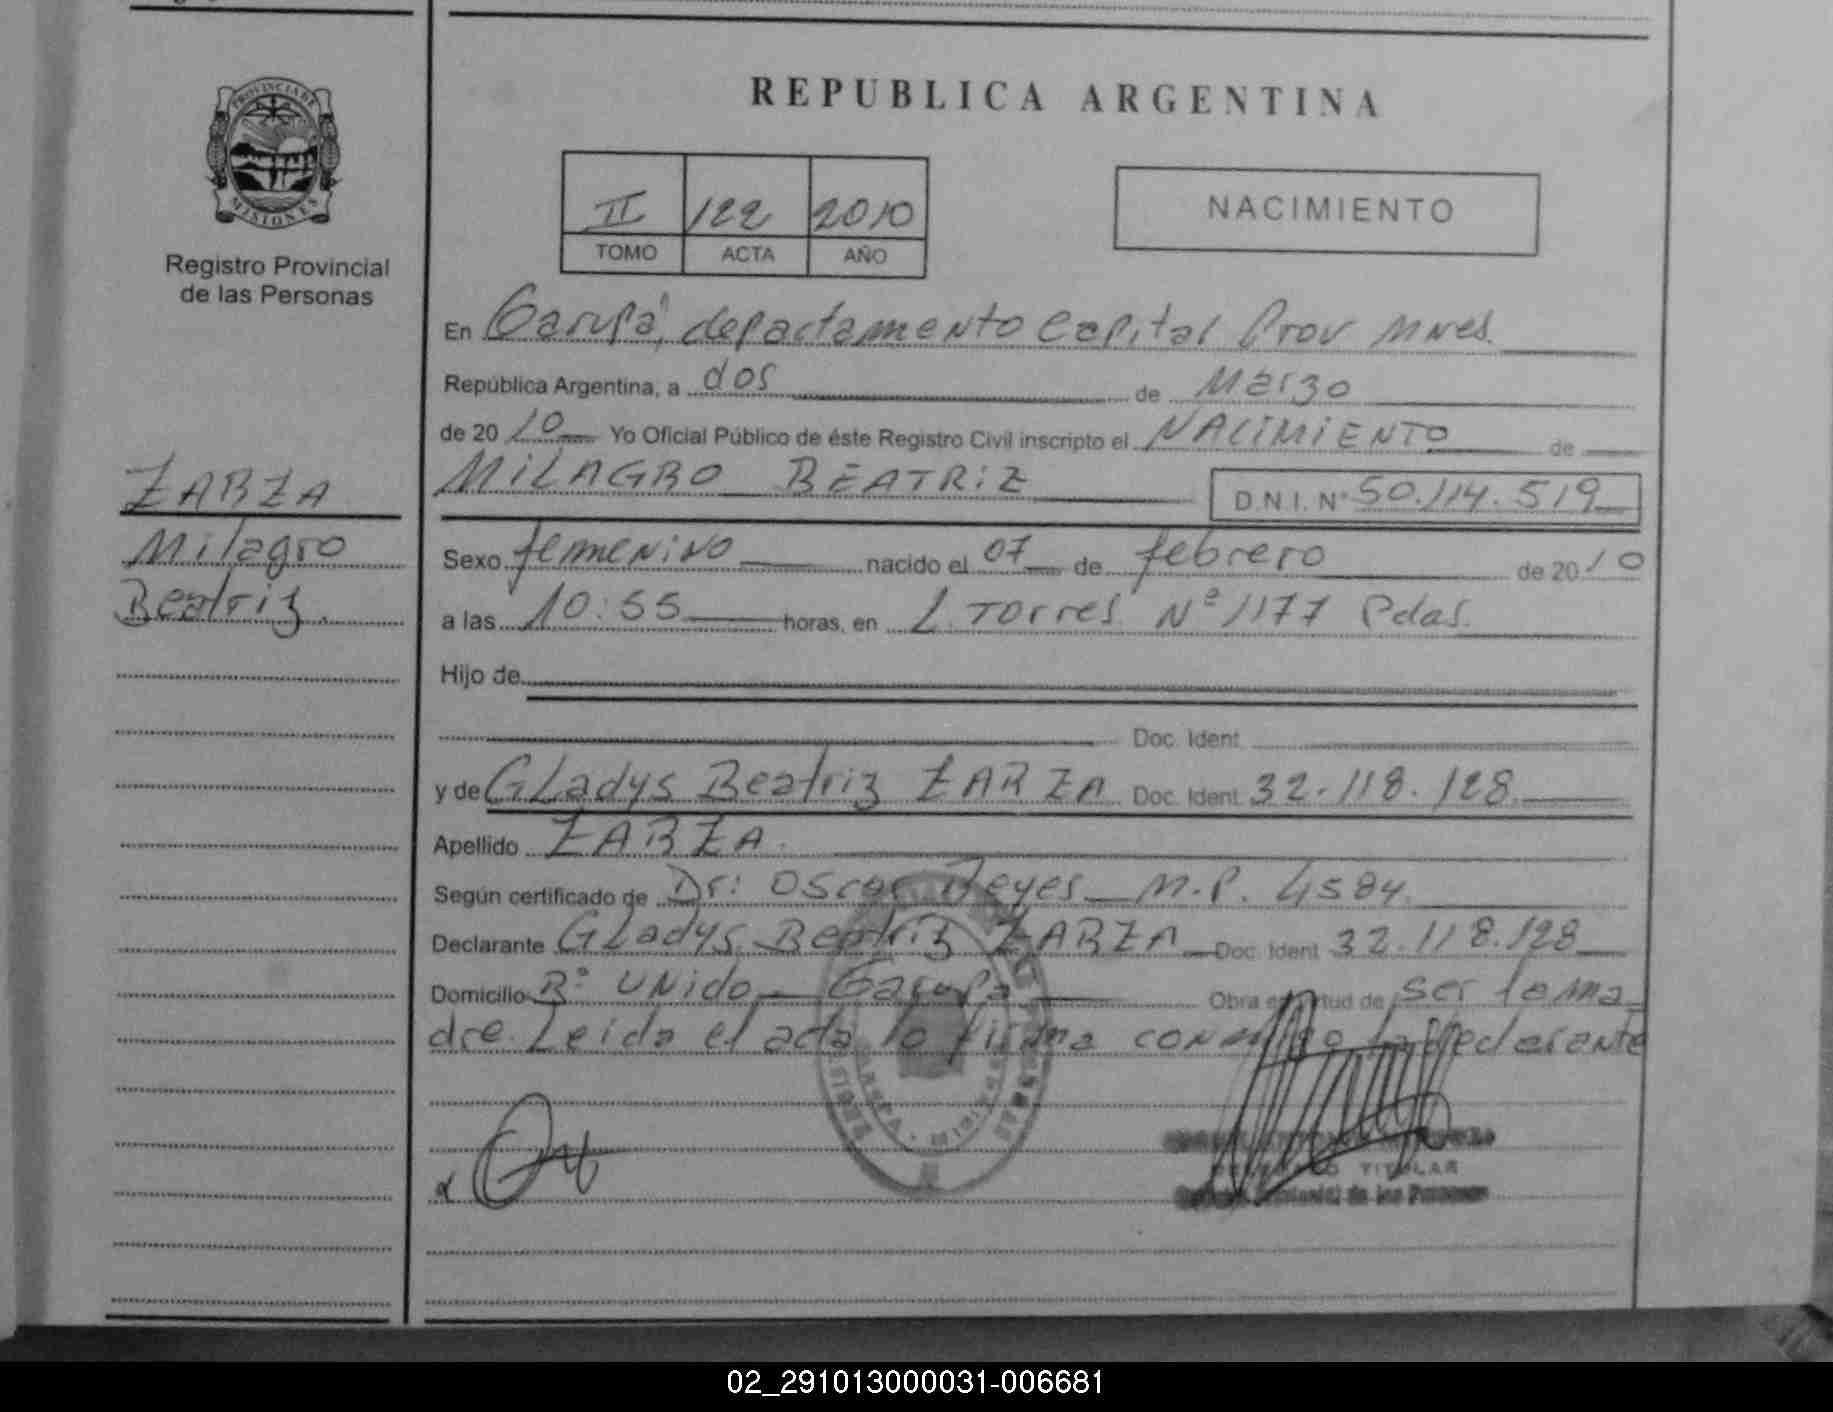 PROVINCIA DE
MISIONES
Registro Provincial
de las Personas
ZARZA
Milagro
Beatriz.
REPUBLICA ARGENTINA
II 122 2010
TOMO ACTA AÑO
NACIMIENTO
En Garupá, departamento Capital Prov Mnes.
República Argentina, a dos de Marzo
de 2010 Yo Oficial Público de éste Registro Civil inscripto el NACIMIENTO de
MILAGRO BEATRIZ D.N.I. N° 50.114.519
Sexo femenino nacido el 07 de febrero de 2010
a las 10:55 horas, en L. Torres Nº 1177 Pdas.
Hijo de
Doc. Ident.
y de Gladys Beatriz ZARZA Doc. Ident. 32.118.128
Apellido ZARZA.
Según certificado de Dr: Oscar M.P. 4584.
Declarante Gladys Beatriz ZARZA Doc. Ident 32.118.128
Domicilio Bº Unido - Garupá Obra en virtud de ser la ma_
dre. Leida el acta la firma conmigo la declarante
TITULAR
de las Personas
02_291013000031-006681